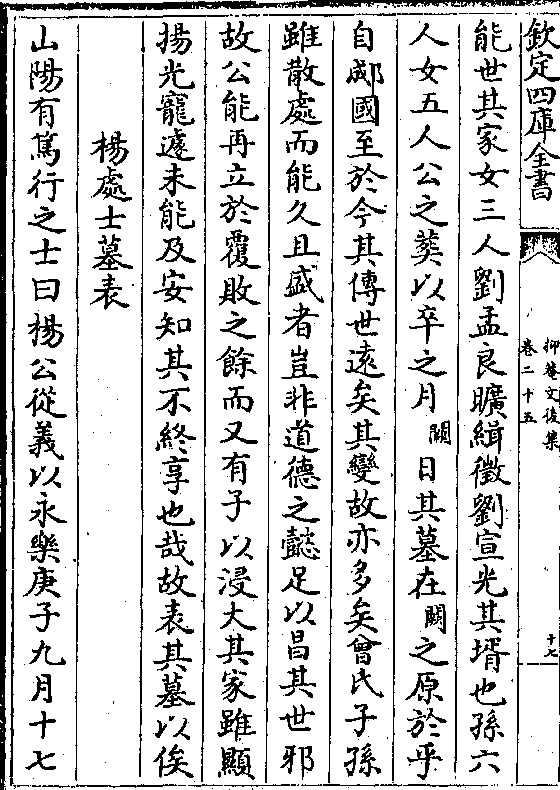 欽定四庫全書
抑菴文後集
卷二十五
十七
能世其家女三人劉孟良曠緝徵劉宣光其壻也孫六
人女五人公之葬以卒之月闕日其墓在闕之原於乎
自鄫國至於今其傳世逺矣其變故亦多矣曾氏子孫
雖散處而能久且盛者豈非道德之懿足以昌其世邪
故公能再立於覆敗之餘而又有子以浸大其家雖顯
揚光寵遽未能及安知其不終享也哉故表其墓以俟
楊處士墓表
山陽有篤行之士曰楊公從義以永樂庚子九月十七